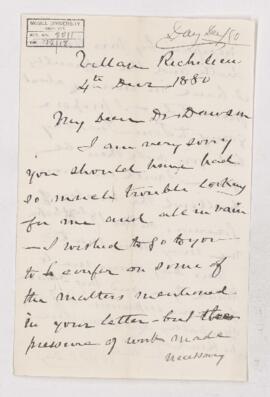 McGILL UNIVERSITY
ACC. NO.
Day Dec/80
Richelieu
4th Decr 1880
My Dear Dr Dawson
I am very sorry
you should have had
so much trouble looking
for me and all in vain
— I wished to go to you
to confer on some of
the matters mentioned
in your letter — but the
pressure of work made
necessary